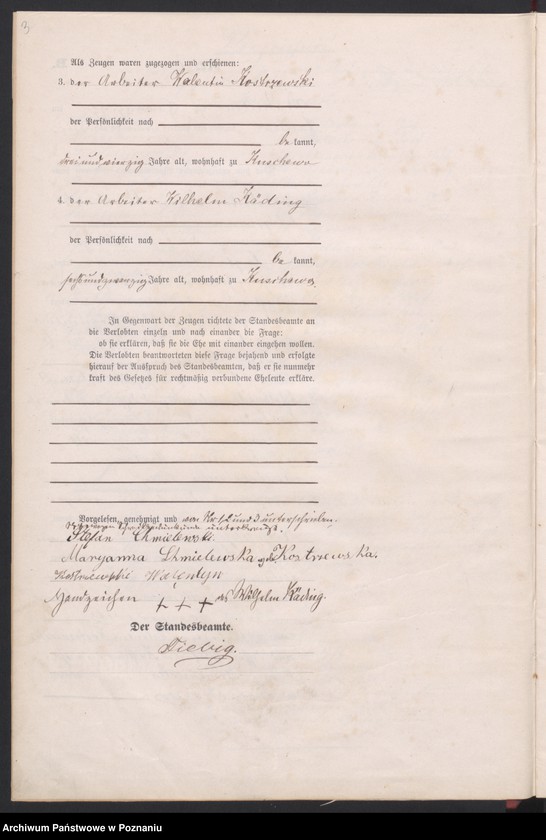 3
Als Zeugen waren zugezogen und erschienen:
3. der Arbeiter Valentin Kostrzewski
der Persönlichkeit nach
be kannt,
dreiundvierzig Jahre alt, wohnhaft zu Kuschewo
4. der Arbeiter Wilhelm Käding
der Persönlichkeit nach
be kannt,
sechsundzwanzig Jahre alt, wohnhaft zu Kuschewo
In Gegenwart der Zeugen richtete der Standesbeamte an
die Verlobten einzeln und nach einander die Frage:
ob sie erklären, daß sie die Ehe mit einander eingehen wollen.
Die Verlobten beantworteten diese Frage bejahend und erfolgte
hierauf der Ausspruch des Standesbeamten, daß er sie nunmehr
kraft des Gesetzes für rechtmäßig verbundene Eheleute erkläre.
Vorgelesen, genehmigt und von Nr. 1, 2 und 3 unterschrieben,
wegen Schreibensunkunde unterkreuzt.
Stefan Chmielewski
Maryanna Chmielewska geb. Kostrzewska.
Walentyn
Handzeichen + + + des Wilhelm Käding.
Der Standesbeamte.
Fiebig.
Archiwum Państwowe w Poznaniu